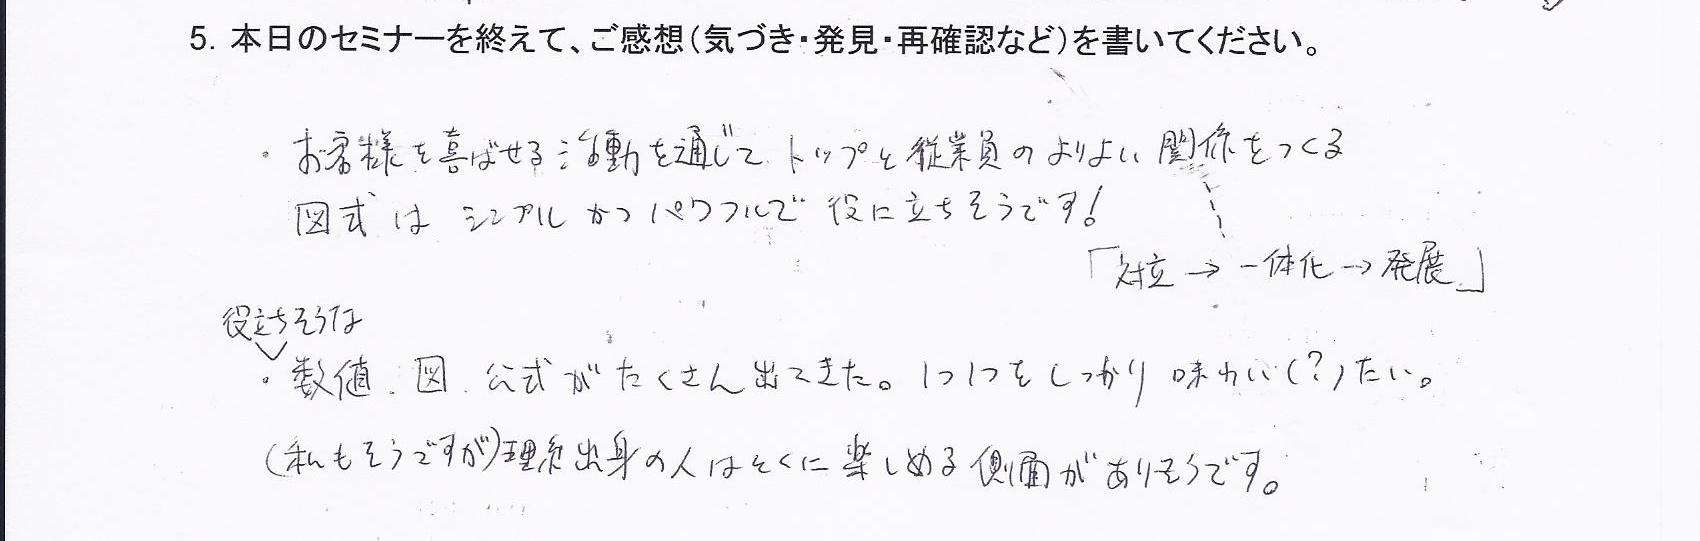 5. 本日のセミナーを終えて、ご感想（気づき・発見・再確認など）を書いてください。
・お客様を喜ばせる活動を通じて、トップと従業員のよりよい関係をつくる
図式は シンプルかつパワフルで 役に立ちそうです!
「対立→一体化→発展」
役立ちそうな
・数値、図、公式がたくさん出てきた。1つ1つをしっかり味わい(?)たい。
(私もそうですが)理系出身の人はとくに楽しめる側面がありそうです。